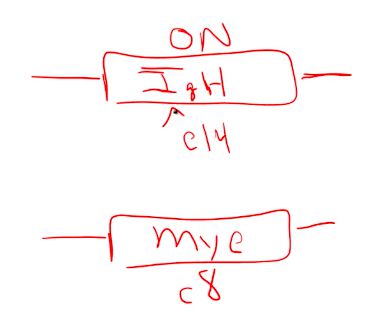 ON
IgH
c14
myc
c8